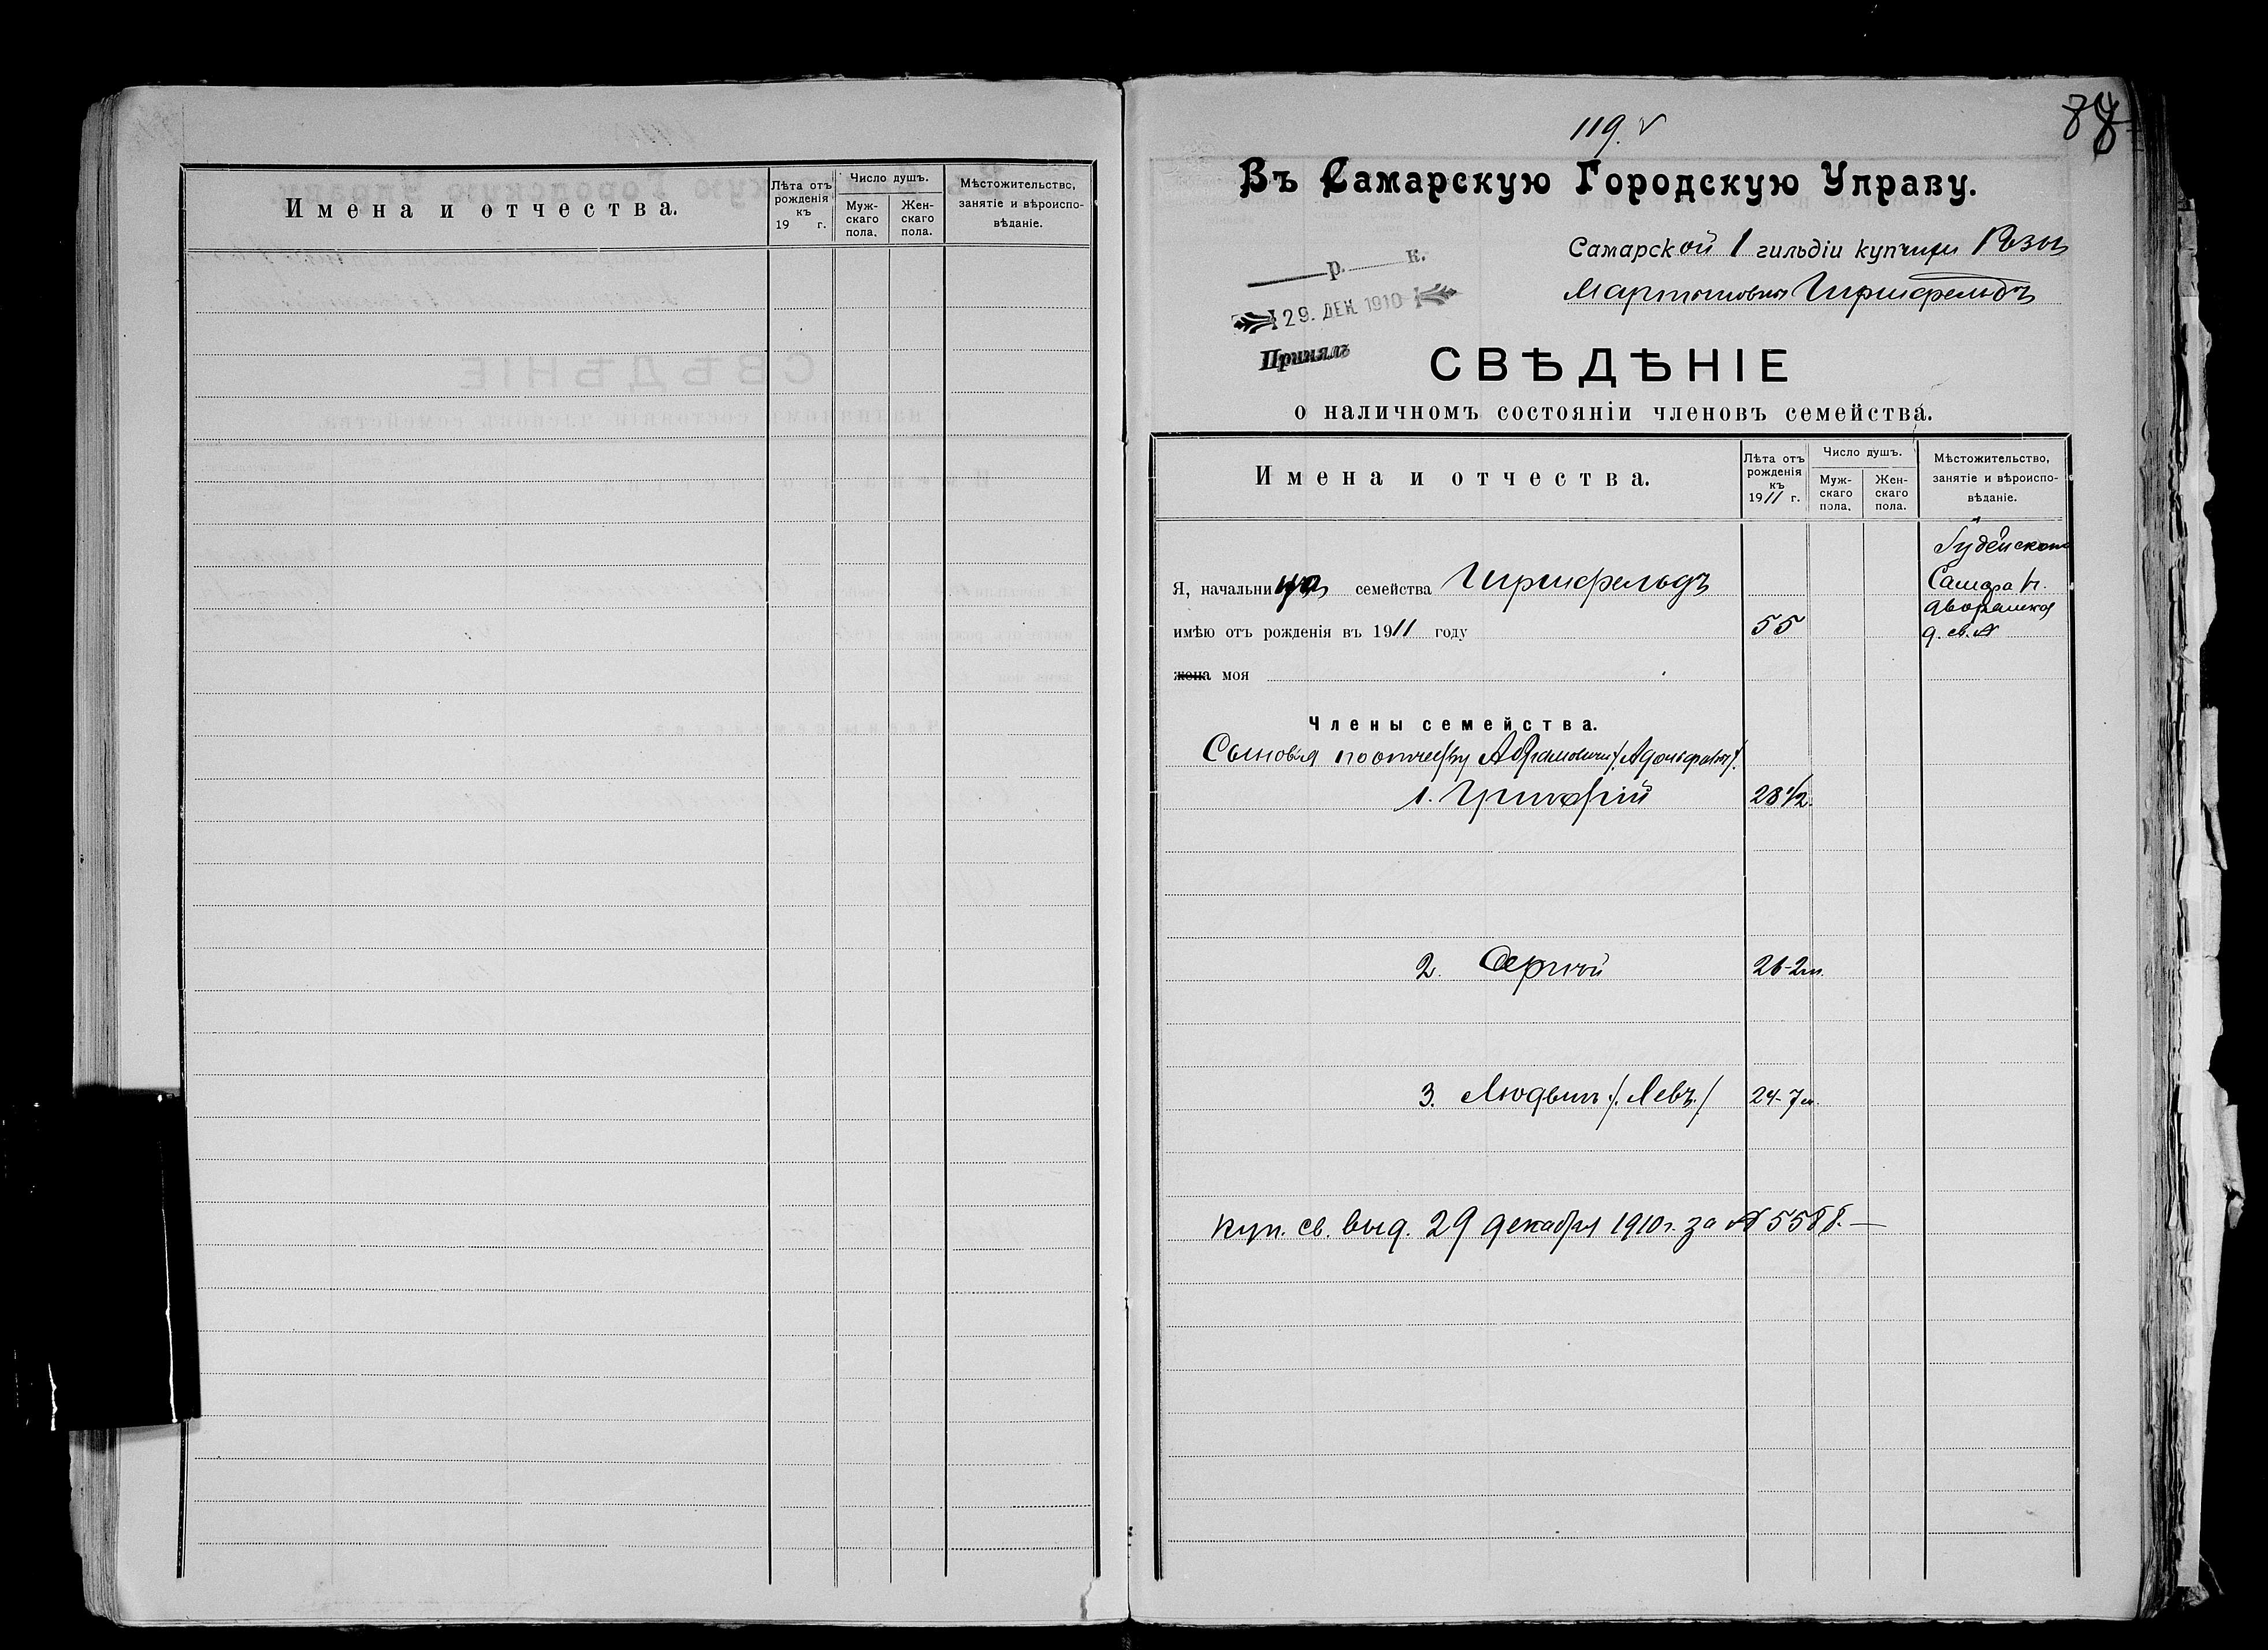 Имена и отчества.
Лѣта отъ рожденія къ 19 г.
Число душъ.
Муж- скаго пола.
Жен- скаго пола.
Мѣстожительство, занятіе и вѣроиспо- вѣданіе.
119. v
Въ Самарскую Городскую Управу.
Самарской 1 гильдіи купчихи Розы
Мартыновны Гиршфельдъ
р. к.
29. ДЕК. 1910
Принялъ
СВѢДѢНІЕ
о наличномъ состояніи членовъ семейства.
Имена и отчества.
Лѣта отъ рожденія къ 1911 г.
Число душъ.
Муж- скаго пола.
Жен- скаго пола.
Мѣстожительство, занятіе и вѣроиспо- вѣданіе.
Іудейскаго
Я, начальница семейства Гиршфельдъ
Самара
имѣю отъ рожденія въ 1911 году 55
Дворянская
д. св. №
жена моя
Члены семейства.
Сыновья по отчеству Абрамовичи /Адольфовичи/.
1. Григорій 28 1/2.
2. Сергѣй 26-2м.
3. Людвигъ /Левъ/ 24-7м.
Куп. св. выд. 29 декабря 1910 г. за № 5588.—